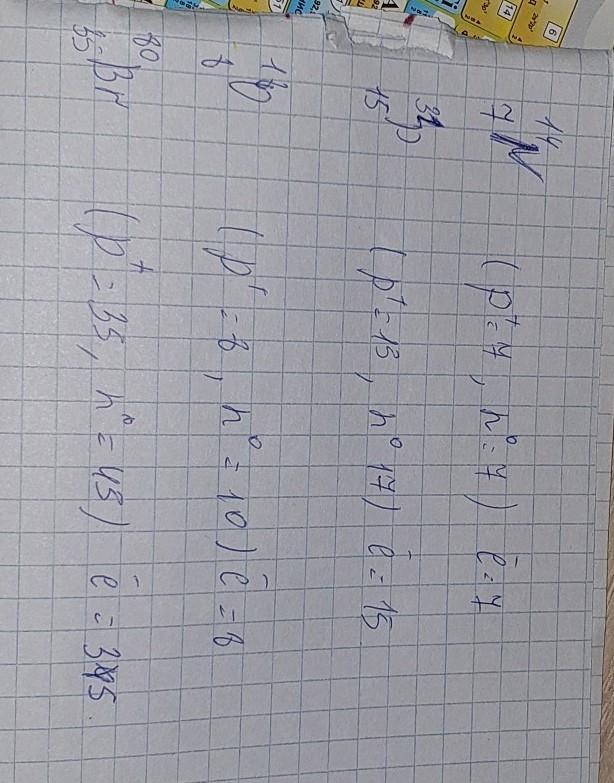 ¹⁴₇N (p⁺=7, n⁰=7) e⁻=7
³¹₁₅P (p⁺=15, n⁰ 17) e⁻=15
¹⁸₈O (p⁺=8, n⁰=10) e⁻=8
⁸⁰₃₅Br (p⁺=35, n⁰=45) e⁻=35.